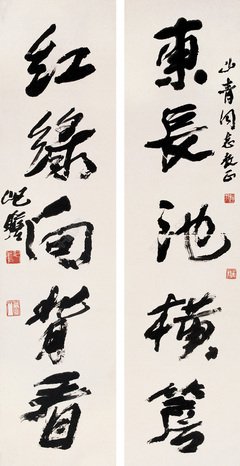 山青同志教正
東長池橫
紅綠向背看
屺瞻